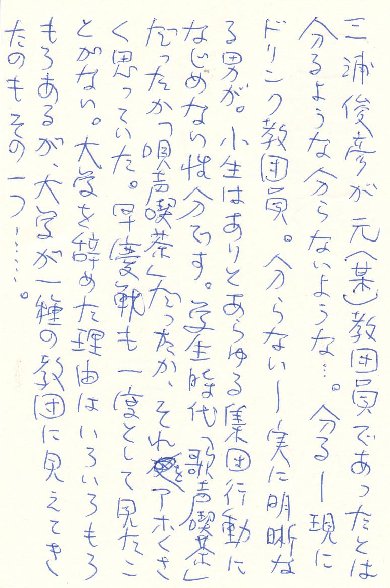 三浦俊彦が元(某)教団員であったとは
分るような分らないような…。分る―現に
ドリンク教団員。分らない―実に明晰な
る男が。小生はありとあらゆる集団行動に
なじめない性分です。学生時代「歌声喫茶」
だったか「唄声喫茶」だったか、それをアホくさ
く思っていた。早慶戦も一度として見たこ
とがない。大学を辞めた理由はいろいろもろ
もろあるが、大学が一種の教団に見えてき
たのもその一つ……。